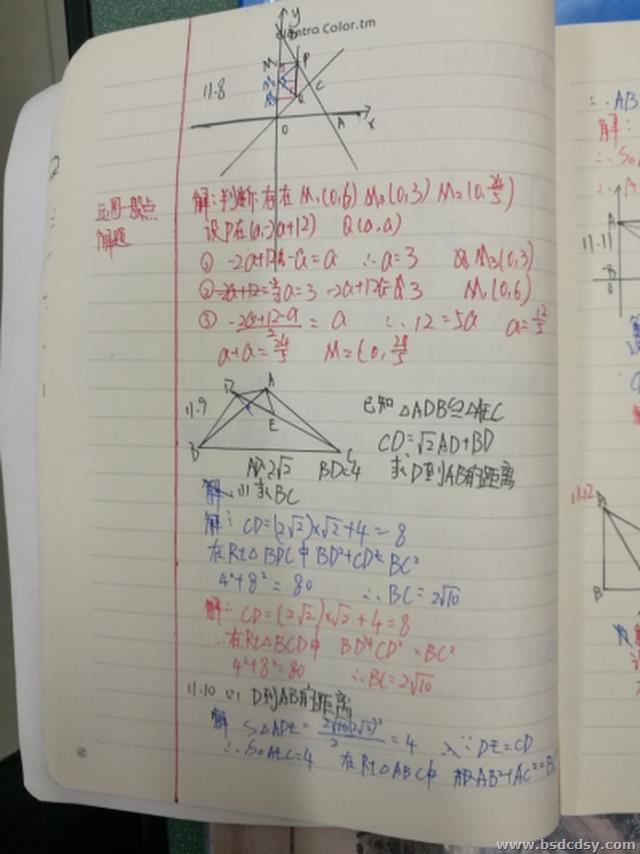 Intro Color.tm
y
M
P
11.8
C
O
A
x
解:判断:存在 M₁(0,6) M₃(0,3) M₂(0,24/5)
设P在(a,-2a+12) Q(a,a)
① -2a+12-a=a ∴a=3 M₃(0,3)
② a=3 M₁(0,6)
③ (-2a+12-a)/2=a ∴12=5a a=12/5
a+a=24/5 M=(0,24/5
解题
11.9
D
A
E
B
C
已知 △ADB≌△AEC
CD=√2AD+BD
AD=2√2 BD=4 求D到AB的距离
解 (1)求BC
解: CD=(2√2)×√2+4=8
在Rt△BDC中 BD²+CD²=BC²
4²+8²=80 ∴BC=2√10
解: CD=(2√2)×√2+4=8
∴在Rt△BCD中 BD²+CD²=BC²
4²+8²=80 ∴BC=2√10
11.10 D到AB的距离
解 S△ADE= =4 ∵DE=CD
∴S△AEC=4 在Rt△ABC中 AB²+AC²=B
∴AB
解:
11.11
11.12
B
www.bsdcdsy.com